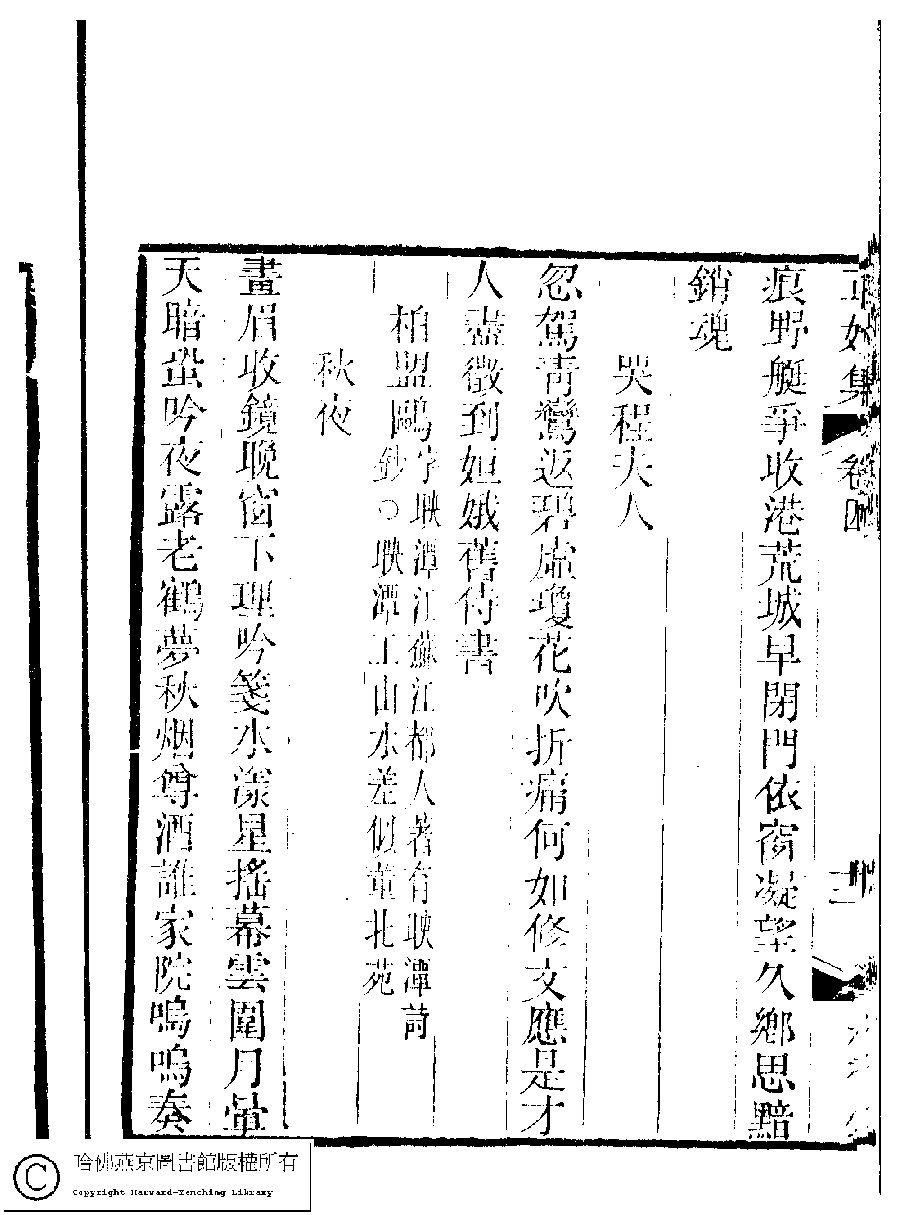 正始集
卷四
痕野艇爭收港荒城早閉門依窗凝望久鄉思黯
銷魂
哭程夫人
忽駕靑鸞返碧虛瓊花吹折痛何如修文應是才
人盡徵到姮娥舊侍書
柏盟鷗字映潭江蘇江都人著有映潭詩
鈔○映潭工山水差似董北苑
秋夜
畫眉收鏡晚窗下理吟箋水漾星搖幕雲圍月暈
天暗蛩吟夜露老鶴夢秋烟尊酒誰家院嗚嗚奏
哈佛燕京圖書館版權所有
Copyright Harvard-Yenching Library